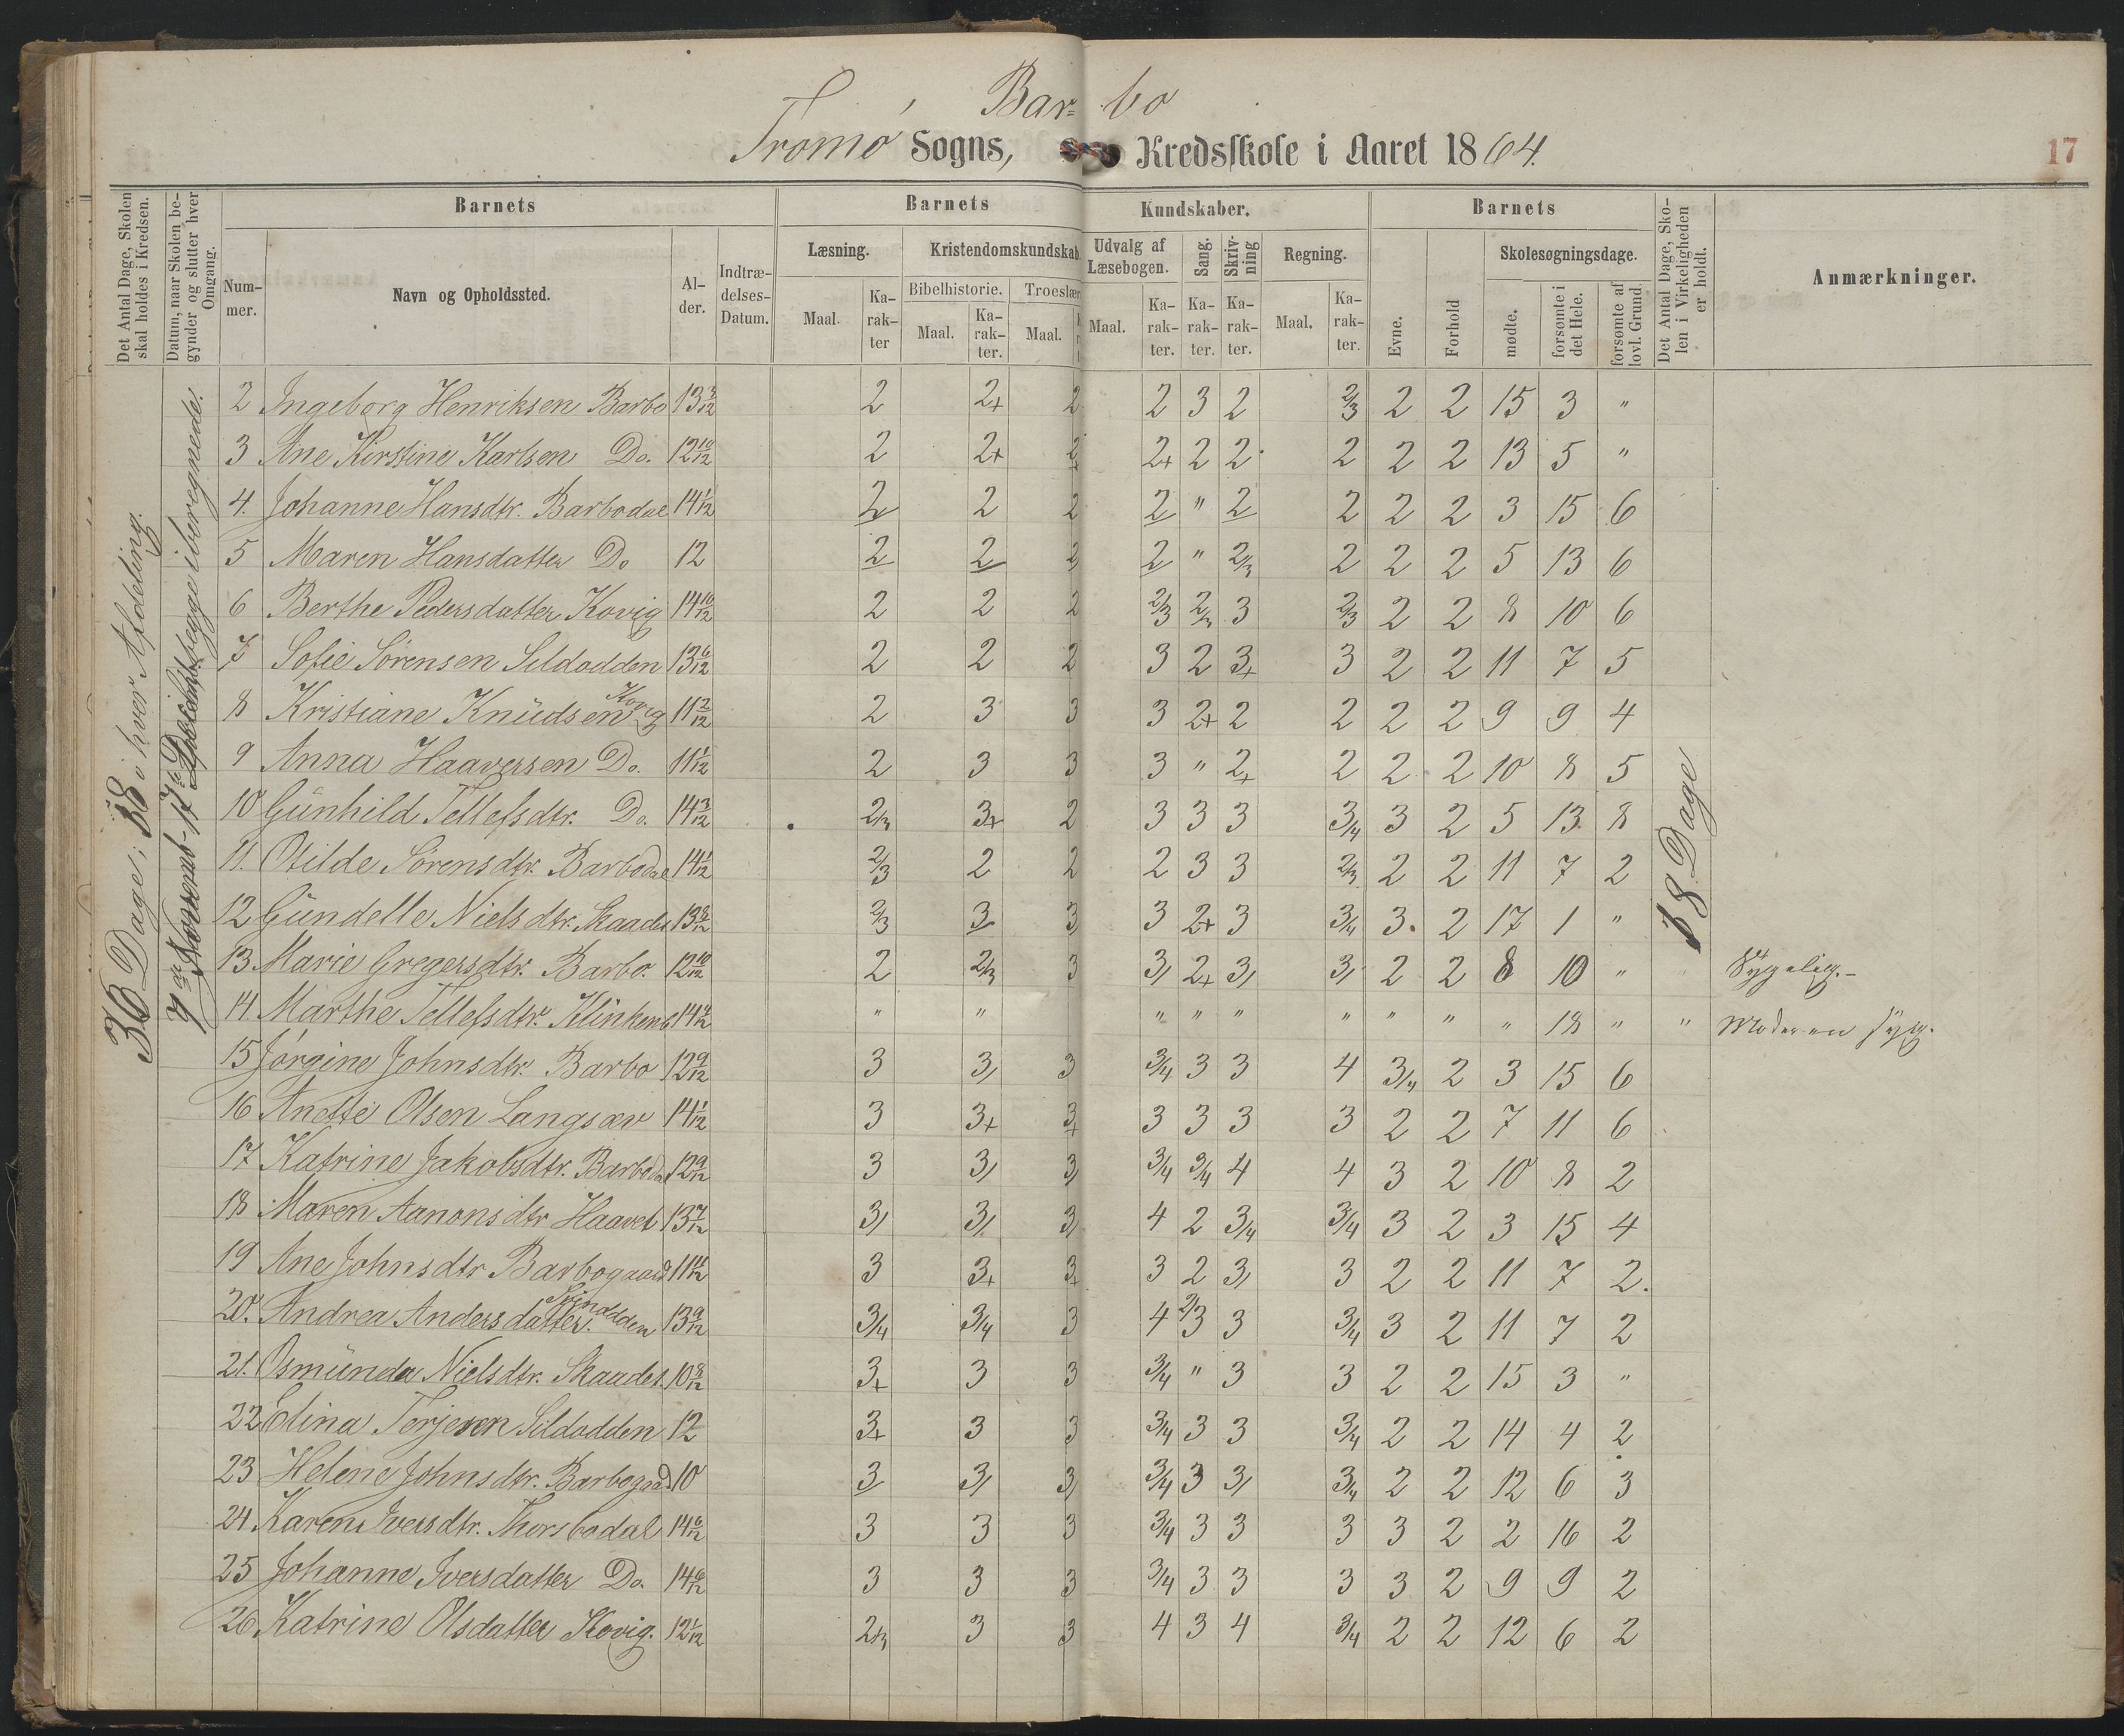 Bar= bo
Tromø Sogns, Kredsskole i Aaret 1864.
17
Det Antal Dage, Skolen skal holdes i Kredsen.
Datum, naar Skolen begynder og slutter hver Omgang.
Barnets
Barnets
Kundskaber.
Barnets
Det Antal Dage, Skolen i Virkeligheden er holdt.
Anmærkninger.
Nummer.
Navn og Opholdssted.
Alder.
Indtrædelses-Datum.
Læsning.
Kristendomskundskab
Udvalg af Læsebogen.
Sang.
Skrivning
Regning.
Evne.
Forhold
Skolesøgningsdage.
Bibelhistorie.
Troeslær
Maal.
Karakter
Maal.
Karakter.
Maal.
Maal.
Karakter.
Karakter.
Karakter.
Maal.
Karakter.
mødte.
forsømte i det Hele.
forsømte af lovl. Grund.
36 Dage; 18 i hver Afdeling.
begge iberegnede.
18 Dage
2 Ingeborg Henriksen Barbo 13 3/12 2 2+ 2 2 3 2 2/3 2 2 15 3 "
3 Ane Kirstine Karlsen Do. 12 10/12 2 2+ 2+ 2+ 2 2 2 2 2 13 5 "
4. Johanne Hansdtr. Barbodal 14 1/12 2 2 2 2 " 2 2 2 2 3 15 6
5 Maren Hansdatter Do 12 2 2 2 2 " 2/3 2 2 2 5 13 6
6 Berthe Pedersdatter Kovig 14 10/12 2 2 2 2/3 2/3 3 2/3 2 2 8 10 6
7 Sofie Sørensen Sildodden 13 6/12 2 2 2 3 2 3+ 3 2 2 11 7 5
8 Kristiane Knüdsen Kovig 11 2/12 2 3 3 3 2+ 2 2 2 2 9 9 4
9 Anna Haaversen Do. 11 1/12 2 3 3 3 " 2+ 2 2 2 10 8 5
10 Günhild Tellefsdtr. Do. 14 3/12 2/3 3+ 2 3 3 3 3/4 3 2 5 13 8
11. Otilde Sørensdtr. Barbodal 14 1/12 2/3 2 2 2 3 3 2/3 2 2 11 7 2
12 Gündelle Nielsdtr. Skaadet 13 8/12 2/3 3 3 3 2+ 3 3/4 3 2 17 1 "
13. Marie Gregersdtr. Barbo. 12 10/12 2 2/3 3 3/ 2+ 3/ 3/ 2 2 8 10 " Sygelig.-
14. Marthe Tellefsdtr. " " " " " " " " " 18 " " Moderen syg.
15 Jørgine Johnsdtr. Barbo 12 9/12 3 3/ 3 3/4 3 3 4 3/4 2 3 15 6
16 Anette Olsen Langsæv 14 1/12 3 3+ 3+ 3 3 3 3 2 2 7 11 6
17 Katrine Jakobsdtr. Barbodal 12 9/12 3 3/ 3/ 3/4 3/4 4 4 3 2 10 8 2
18 Maren Aanonsdtr Haavet 13 7/12 3/ 3/ 3/ 4 2 3/4 3/4 3 2 3 15 4
19 Ane Johnsdtr Barbogaard 3 3+ 3+ 3 2 3/ 3 2 2 11 7 2.
20. Andrea Andersdatter. Svinodden 13 9/12 3/4 3/4 3 4 2/3 3 3/4 3 2 11 7 2
21. Osmünda Nielsdtr. Skaadet. 10 8/12 3+ 3 3 3/4 " 3 3 2 2 15 3 "
22 Elina Terjesen Sildodden 12 3+ 3 3 3/4 3 3 3/4 2 2 14 4 2
23 Helene Johnsdtr. Barbogaard 10 3 3/ 3/ 3/4 3 3/ 3/4 2 2 12 6 3
24 Karen Iversdtr. Thorsbodal 14 6/12 3 3 3 3/4 3 3 3 3 2 2 16 2
25 Johanne Iversdatter Do. 14 6/12 3 3 3 3/4 3 3 3 3 2 9 9 2
26 Katrine Olsdatter Kovig. 12 1/12 2/3 3 3 4 3 4 3/4 2 2 12 6 2